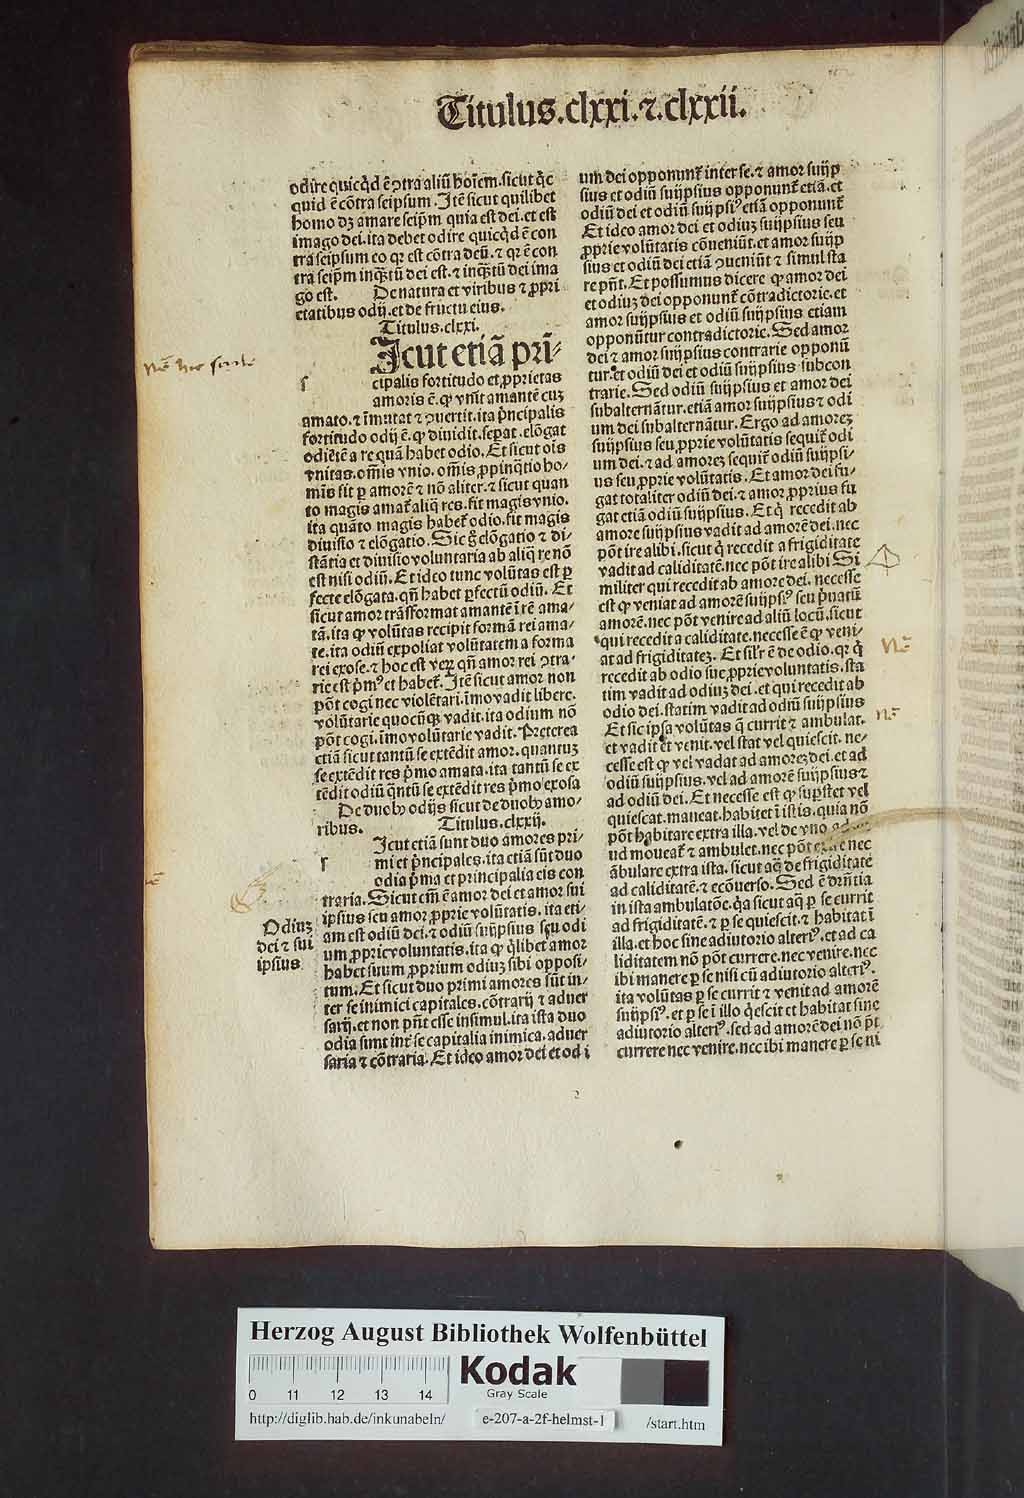 Titulus.clxxi.⁊.clxxii.
odire quicq̇d ē ꝯtra aliū hoīem.sicut q̇c
quid ē cōtra seipsum.Itē sicut quilibet
homo dꝫ amare seip̄m quia est dei.et est
imago dei.ita debet odire quicq̇d ē con
tra seipsum eo qꝛ est cōtra deū.⁊ qꝛ ē con
tra seip̄m inqꝫtū dei est.⁊ inqꝫtū dei ima
go est. De natura et viribus ⁊ ꝓpri
etatibus odij.et de fructu eius.
Titulus.clxxi.
Icut etiā pri-
s
cipalis fortitudo et ꝓprietas
amoris ē.ꝙ vnit amantē cuꝫ
amato.⁊ īmutat ⁊ ꝯuertit.ita p̄ncipalis
fortitudo odij ē.ꝙ diuidit.seꝑat.elōgat
odiētē a re quā habet odio.Et sicut oīs
vnitas.om̄is vnio.om̄is ꝓpinq̄tio ho-
mīs fit ꝑ amorē ⁊ nō aliter.⁊ sicut quan
to magis amat̄ aliq̄ res.fit magis vnio.
ita quāto magis habet̄ odio.fit magis
diuisio ⁊ elōgatio.Sic g̊ elōgatio ⁊ di-
stātia et diuisio voluntaria ab aliq̄ re nō
est nisi odiū.Et ideo tunc volūtas est ꝑ
fecte elōgata.qn̄ habet ꝑfectū odiū.Et
sicut amor trāsformat amantē ī rē ama-
tā.ita ꝙ volūtas recipit formā rei ama-
te.ita odiū expoliat volūtatem a forma
rei exose.⁊ hoc est veꝝ qn̄ amor rei ꝯtra-
rie est p̄mꝰ et habet̄.Itē sicut amor non
pōt cogi nec violētari.īmo vadit libere.
volūtarie quocūqꝫ vadit.ita odium nō
pōt cogi.īmo volūtarie vadit.Preterea
etiā sicut tantū se extēdit amor.quantuꝫ
se extēdit res p̄mo amata.ita tantū se ex
tēdit odiū q̄ntū se extēdit res p̄mo exosa
De duobꝰ odijs sicut de duobꝰ amo-
ribus. Titulus.clxxij.
Icut etiā sunt duo amores pri-
s
mi et p̄ncipales.ita etiā sūt duo
odia p̄ma et principalia eis con
traria.Sicut em̄ ē amor dei et amor sui
ipsius seu amor ꝓprie volūtatis.ita eti-
am est odiū dei.⁊ odiū suijpsius seu odi
um ꝓprie voluntatis.ita ꝙ q̇libet amor
habet suum ꝓprium odiuꝫ sibi opposi-
tum.Et sicut duo primi amores sūt in-
ter se inimici capitales.cōtrarij ⁊ aduer
sarij.et non pn̄t esse insimul.ita ista duo
odia sunt int̄ se capitalia inimica.aduer
saria ⁊ cōtraria.Et ideo amor dei et od i
Odiuꝫ
dei ⁊ sui
ipsius
um dei opponunt̄ inter se.⁊ amor suijp
sius et odiū suijpsius opponunt̄ etiā.et
odiū dei et odiū suijpsiꝰ etiā opponunt̄
Et ideo amor dei et odiuꝫ suijpsius seu
ꝓprie volūtatis cōueniūt.et amor suijp
sius et odiū dei etiā ꝯueniūt ⁊ simul sta
re pn̄t.Et possumus dicere ꝙ amor dei
et odiuꝫ dei opponunt̄ cōtradictorie.et
amor suijpsius et odiū suijpsius etiam
opponūtur contradictorie.Sed amor
dei ⁊ amor suijpsius contrarie opponū
tur.et odiū dei et odiū suijpsius subcon
trarie.Sed odiū suijpsius et amor dei
subalternātur.etiā amor suijpsius ⁊ odi
um dei subalternātur.Ergo ad amoreꝫ
suijpsius seu ꝓprie volūtatis sequit̄ odi
um dei.⁊ ad amoreꝫ sequit̄ odiū suijpsi-
us seu ꝓprie volūtatis.Et amor dei fu-
gat totaliter odiū dei.⁊ amor ꝓprius fu
gat etiā odiū suijpsius.Et q̇ recedit ab
amore suijpsius vadit ad amorē dei.nec
pōt ire alibi.sicut q̇ recedit a frigiditate
vadit ad caliditatē.nec pōt ire alibi Si
militer qui recedit ab amore dei.necesse
est ꝙ veniat ad amorē suijpsiꝰ seu p̄uatū
amorē.nec pōt venire ad aliū locū.sicut
qui recedit a caliditate.necesse ē ꝙ veni-
at ad frigiditateꝫ.Et sīl'r ē de odio.qꝛ q̇
recedit ab odio sue ꝓprie voluntatis.sta
tim vadit ad odiuꝫ dei.et qui recedit ab
odio dei.statim vadit ad odiū suijpsius
Et sic ipsa volūtas q̄ currit ⁊ ambulat.
et vadit et venit.vel stat vel quiescit.ne-
cesse est ꝙ vel vadat ad amoreꝫ dei.et ad
odiū suijpsius.vel ad amorē suijpsius ⁊
ad odiū dei.Et necesse est ꝙ suꝑstet vel
quiescat.maneat.habitet ī istis.quia nō
pōt habitare extra illa.vel de vno ad
ud moueat̄ ⁊ ambulet.nec pōt nec
ābulare extra ista.sicut aq̄ de frigiditate
ad caliditatē.⁊ ecōuerso.Sed ē drn̄tia
in ista ambulatōe.q̇a sicut aq̄ ꝑ se currit
ad frigiditatē.⁊ ꝑ se quiescit.⁊ habitat ī
illa.et hoc sine adiutorio alteriꝰ.et ad ca
liditatem nō pōt currere.nec venire.nec
ibi manere ꝑ se nisi cū adiutorio alteriꝰ.
ita volūtas ꝑ se currit ⁊ venit ad amorē
suijpsiꝰ.et ꝑ se ī illo q̇escit et habitat sine
adiutorio alteriꝰ.sed ad amorē dei nō pōt
currere nec venire.nec ibi manere ꝑ se ni
Herzog August Bibliothek Wolfenbüttel
0 11 12 13 14
Kodak
Gray Scale
http://diglib.hab.de/inkunabeln/ e-207-a-2f-helmst-1 /start.htm